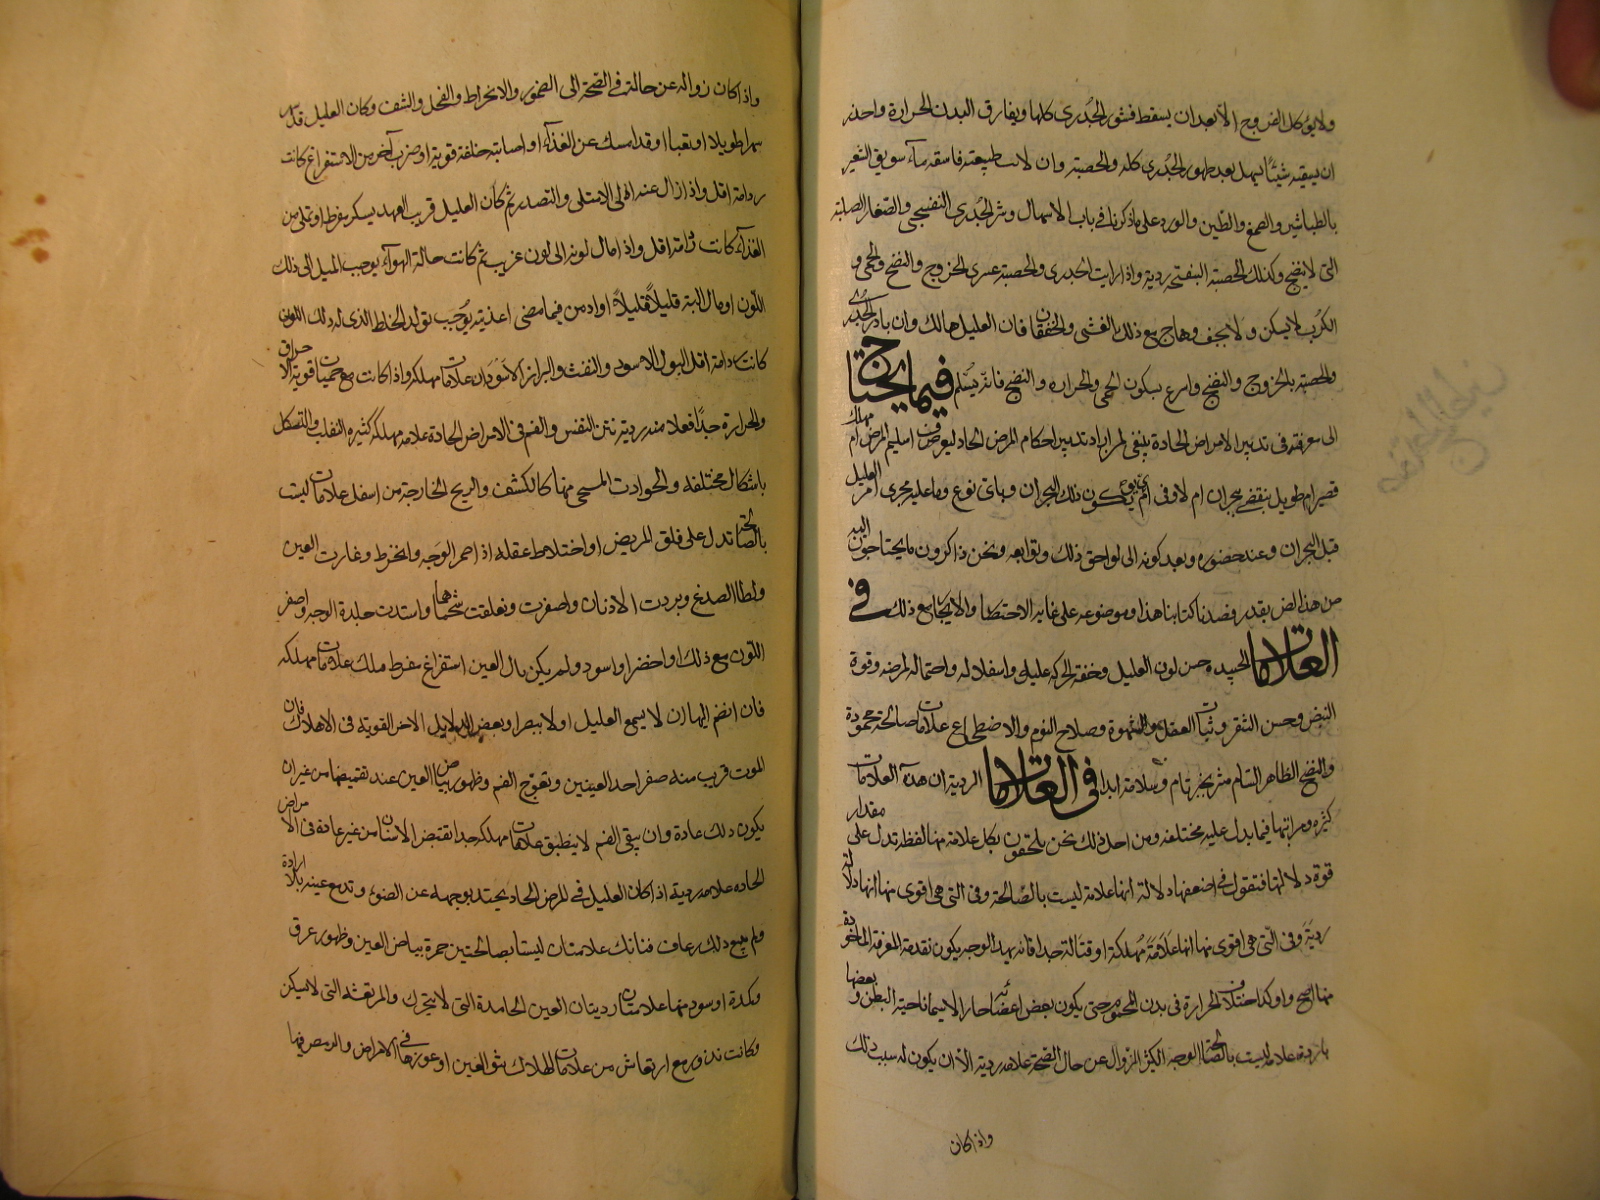 ولا يؤكل الفروج الا بعد ان يسقط قشور الجدري كلها ويفارق البدن الحرارة واحذر
ان يسقيه شيئًا يسهل بعد ظهور الجدري كله والحصبة وان لانت طبيعته فاسقه ماء سويق الشعير
بالطباشير والصمغ والطين والورد على ما ذكرنا في باب الاسهال وشر الجدري البنفسجي والصغار الصلبة
التي لا ينضج وكذلك الحصبة البنفسجية ردية واذا رايت الجدري والحصبة عسري الخروج والنضج والحمى و
الكرب لا يسكن ولا يخف وهاج مع ذلك بالغشي والخفقان فان العليل هالك وان بادر الجدري
والحصبة بالخروج والنضج واسرع سكون الحمى والحرارة والنضج فانه يسلم فيما يحتاج
الى معرفته في تدبير الامراض الحادة ينبغي لمن اراد تدبير احكام المرض الحاد ليعرف اسليم المرض ام مهلك
قصير ام طويل ينقضي ببحران ام لا وفي اي يوم يكون ذلك البحران وباي نوع وما عليه مجرى امر العليل
قبل البحران وعند حضوره وبعد كونه الى لواحق ذلك وتوابعه ونحن ذاكرون ما يحتاجون اليه
من هذا الفن بقدر قصدنا كتابنا هذا وموضوعه على غاية الاختصار والايجاز مع ذلك في
العلامات الجيدة حسن لون العليل وخفة الحركة عليه واستقلاله واحتماله لمرضه وقوة
النبض وحسن التنفس وثبات العقل والشهوة وصلاح النوم والاضطجاع علامات صالحة محمودة
والنضج الظاهر التام مبشر بخير تام وسلامة ابدا في العلامات الردية ان هذه العلامات
كثيرة ومراتبها فيما يدل عليه مختلفة ومن اجل ذلك نحن ملحقون بكل علامة منها لفظة تدل على مقدار
قوة دلالتها فنقول في اضعفها دلالة انها علامة ليست بالصالحة وفي التي هي اقوى منها انها دلالة
ردية وفي التي هي اقوى منها انها علامة مهلكة او قتالة جدا فانه بهذا الوجه يكون تقدمة المعرفة الماخوذة
منها اصح واوكد اختلاف الحرارة في بدن المحموم حتى يكون بعض اعضائه حارا لا سيما ناحية البطن وبعضها
باردة علامة ليست بالصالحة الوجه الكثير الزوال عن حال الصحة علامة ردية الا ان يكون له سبب ذلك
واذا كان
واذا كان زواله عن حالته في الصحة الى الضمور والانخراط والقحل والشف وكان العليل قد
سهر طويلا او تعبا او قد امسك عن الغذاء او اصابته خلفة قوية او ضرب آخر من الاستفراغ كانت
رداءته اقل واذا زال عنه الى الامتلى ثم كان العليل قريب العهد بسكر مفرط او تملى من
الغذاء كانت اقل واذا مال لونه الى لون غريب ثم كانت حالة الهواء يوجب الميل الى ذلك
اللون او مال اليه قليلاً قليلاً او ادمن فيما مضى اغذية يوجب تولد الخلط الذي له ذلك اللون
كانت رداءته اقل البول الاسود والنفث والبراز الاسودان علامات مهلكة واذا كانت مع حميات قوية الاحراق
والحرارة جدا نتن النفس والفم في الامراض الحادة علامة مهلكة كثيرة التقلب والتشكل
باشكال مختلفة والريح الخارجة من اسفل علامات ليست
بالصالحة تدل على قلق المريض او اختلاط عقله اذا احمر الوجه وانخرط وغارت العين
ولطا الصدغ وبردت الاذنان واصفرت وتعلقت شحمتاها واشتدت جلدة الوجه واصفر
اللون مع ذلك او اخضر او اسود ولم يكن بال العين استفراغ مفرط فتلك علامات مهلكة
فان انضم اليها ان لا يسمع العليل او لا يبصر او بعض الدلايل الاخر القوية في الاهلاك فان
الموت قريب منه صغر احد العينين وتعوج الفم وظهور بياض العين عند تغميضها من غير ان
يكون ذلك عادة وان يبقى الفم لا ينطبق علامات مهلكة جدا من غير عادة في الامراض
الحادة علامة ردية اذا كان العليل في المرض الحاد يحيد بوجهه عن الضوء وتدمع عينه بلا ارادة
ولم يتبع ذلك رعاف فتانك علامتان ليستا بصالحتين حمرة بياض العين وظهور عرق
وكدة او سود منها علامتان رديتان العين الجامدة التي لا تتحرك والمرتعشة التي لا تسكن
وكانت تدور مع ارتعاش من علامات الهلاك نتو العين او غورها في الامراض والرمص فيها